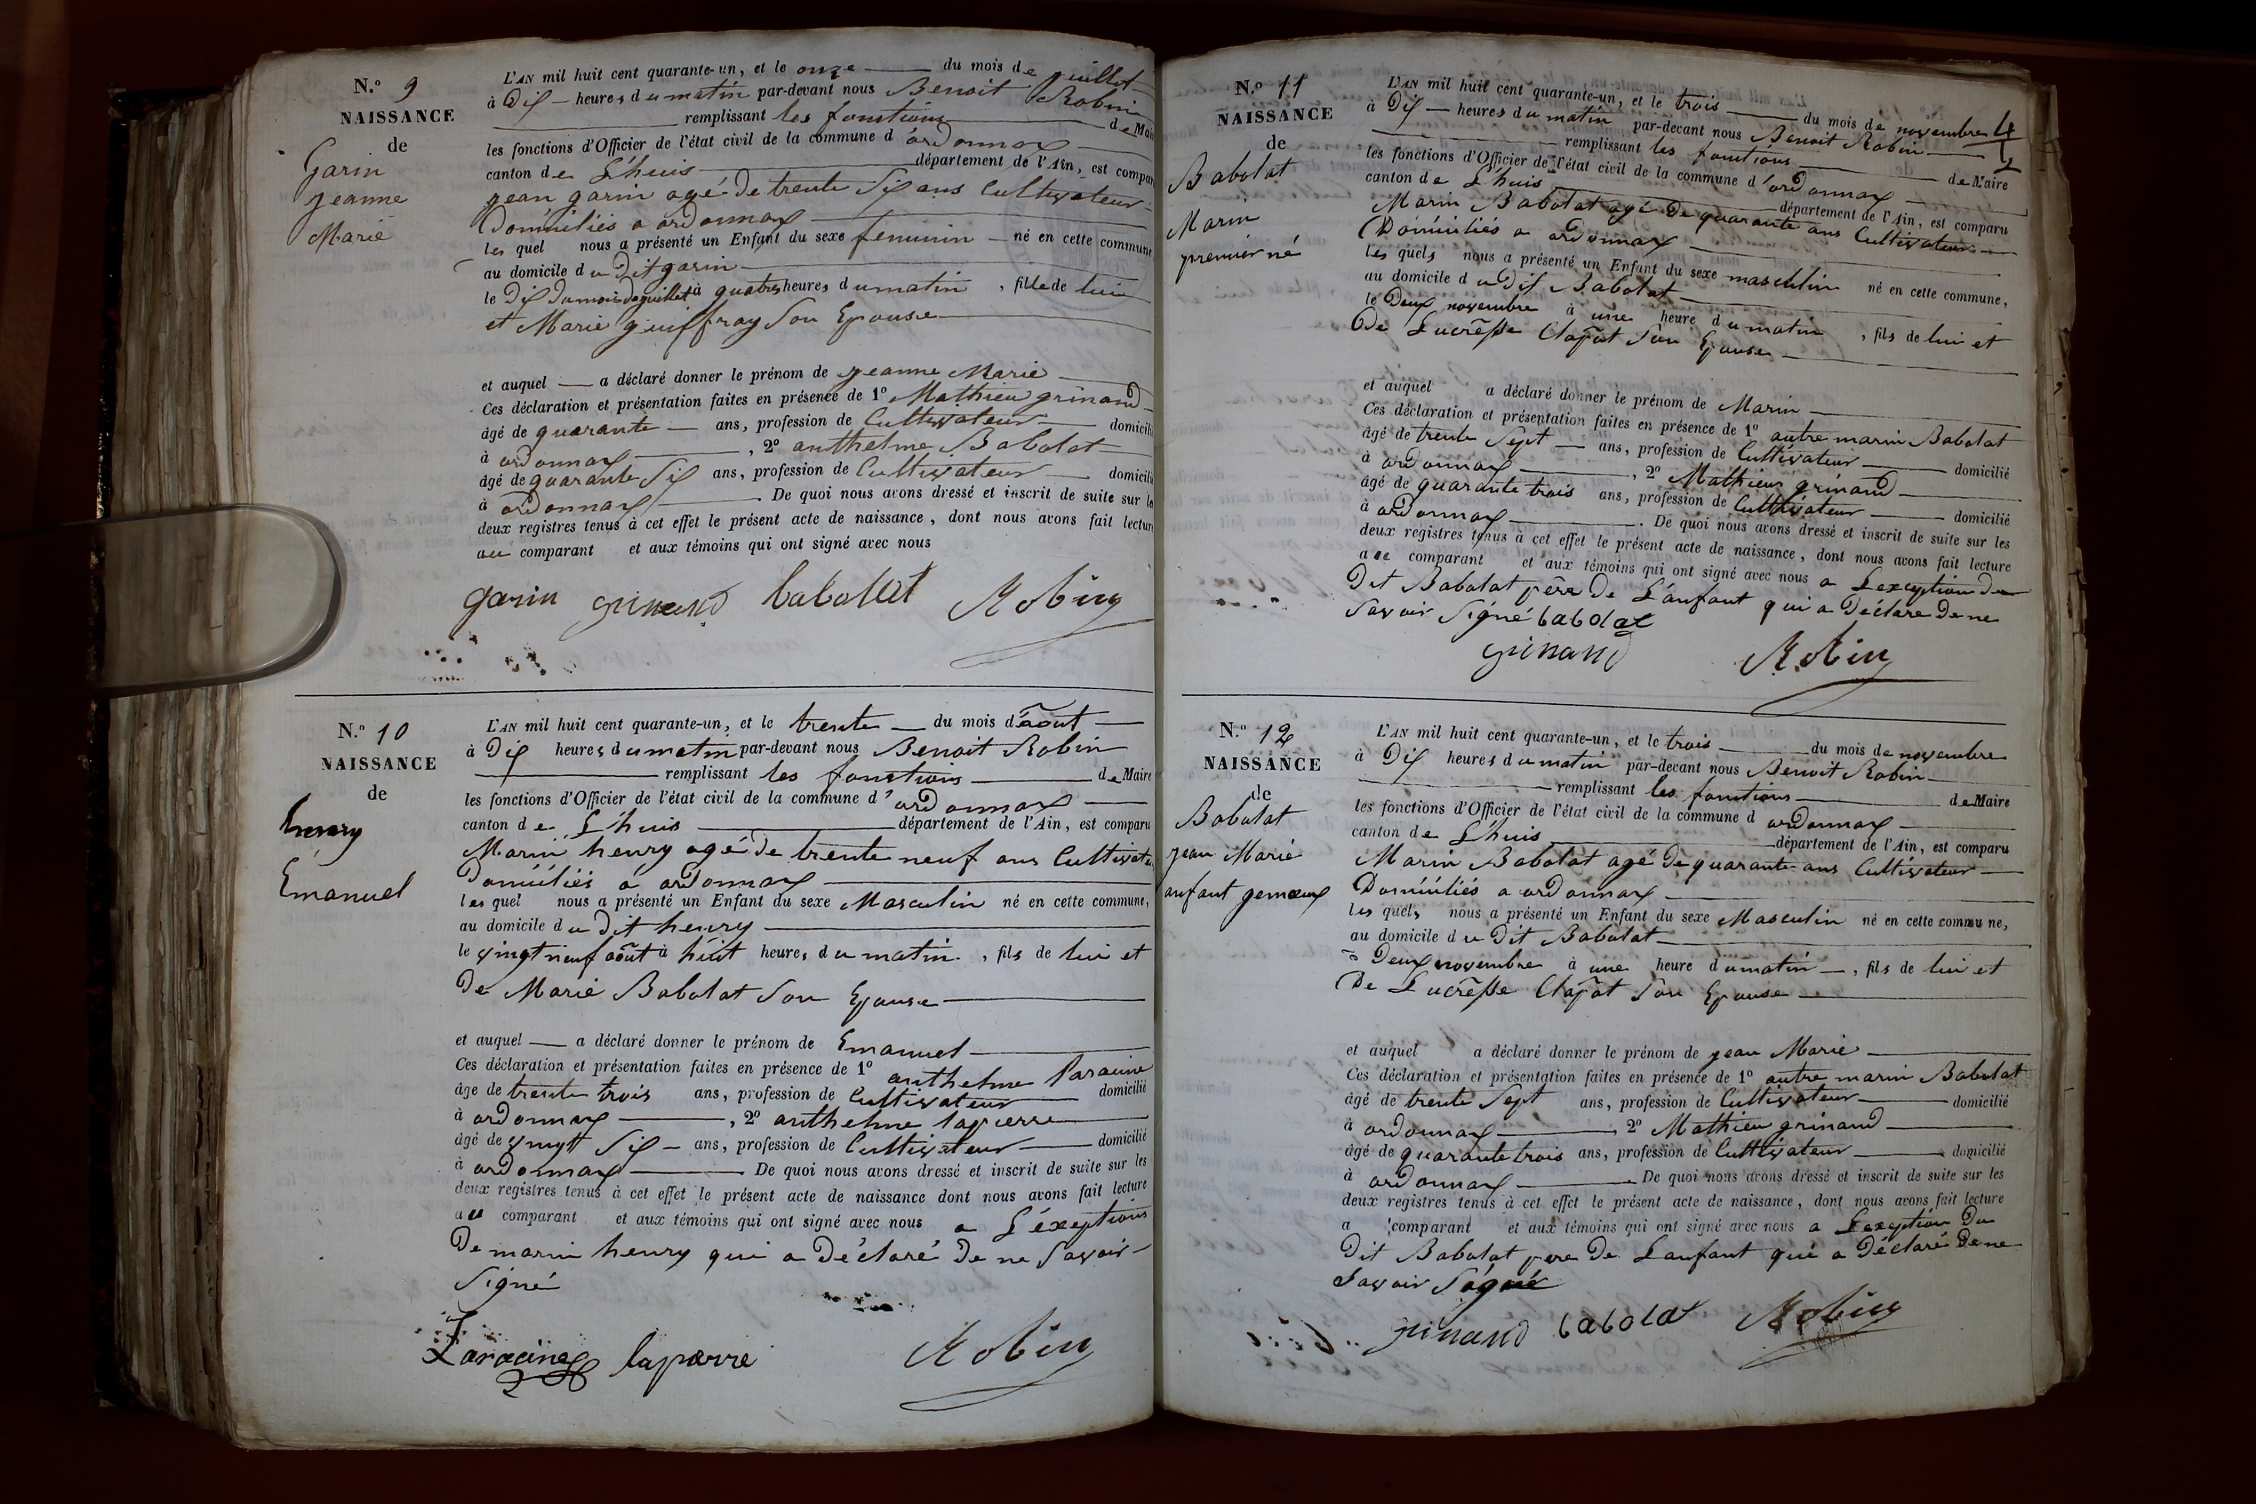 N.° 9
NAISSANCE
de
Garin
jeanne
Marie
L'AN mil huit cent quarante-un, et le onze du mois de juillet
à Dix heures du matin par-devant nous Benoit Robin
remplissant les fonctions de Mai
les fonctions d'Officier de l'état civil de la commune d'ordonnax
canton de L'huis département de l'Ain, est compar
jean garin agé De trente Six ans Cultivateur
Domiciliés a ordonnax
les quel nous a présenté un Enfant du sexe femninin né en cette commune
au domicile du Dit garin
le Dix Du mois De juillet à quatres heures du matin, fille de lui
et Marie guiffray Son Epouse
et auquel a déclaré donner le prénom de jeanne Marie
Ces déclaration et présentation faites en présence de 1° Mathieu grinand
âgé de quarante ans, profession de Cultivateur domicili
à ordonnax, 2° anthelme Babolat
âgé de quarante Six ans, profession de Cultivateur domicilié
à ordonnax. De quoi nous avons dressé et inscrit de suite sur le
deux registres tenus à cet effet le présent acte de naissance, dont nous avons fait lecture
au comparant et aux témoins qui ont signé avec nous
garin grinand babollat Robin
N.° 10
NAISSANCE
de
henry
Emanuel
L'AN mil huit cent quarante-un, et le trente du mois d'août
à Dix heures du matin par-devant nous Benoit Robin
remplissant les fonctions de Maire
les fonctions d'Officier de l'état civil de la commune d'ordonnax
canton de L'huis département de l'Ain, est comparu
Marin henry agé De trente neuf ans Cultivate
Domiciliés a ordonnax
les quel nous a présenté un Enfant du sexe Masculin né en cette commune,
au domicile du Dit henry
le vingt neuf août à huit heures du matin, fils de lui et
De Marie Babolat Son Epouse
et auquel a déclaré donner le prénom de Emanuel
Ces déclaration et présentation faites en présence de 1° anthelme Laracine
âgé de trente trois ans, profession de Cultivateur domicilié
à ordonnax, 2° anthelme lapierre
âgé de vingtt Six ans, profession de Cultivateur domicilié
à ordonnax De quoi nous avons dressé et inscrit de suite sur les
deux registres tenus à cet effet le présent acte de naissance dont nous avons fait lecture
au comparant et aux témoins qui ont signé avec nous a L'éxeptions
De marin henry qui a Déclaré De ne Savoir
Signé
Laracine lapierre Robin
N.° 11
NAISSANCE
de
Babolat
Marin
premier né
L'AN mil huit cent quarante-un, et le trois du mois de novembre
à Dix heures du matin par-devant nous Benoit Robin
remplissant les fonctions de Maire
les fonctions d'Officier de l'état civil de la commune d'ordonnax
canton de L'huis département de l'Ain, est comparu
Marin Babolat agé De quarante ans Cultivateur
Domiciliés a ordonnax
les quels nous a présenté un Enfant du sexe masculin né en cette commune,
au domicile du Dit Babolat
le Deux novembre à une heure du matin, fils de lui et
De Lucresse Clapot Son Epouse
et auquel a déclaré donner le prénom de Marin
Ces déclaration et présentation faites en présence de 1° autre marin Babolat
âgé de trente Sept ans, profession de Cultivateur domicilié
à ordonnax, 2° Mathieu grinand
âgé de quarante trois ans, profession de Cultivateur domicilié
à ordonnax. De quoi nous avons dressé et inscrit de suite sur les
deux registres tenus à cet effet le présent acte de naissance, dont nous avons fait lecture
au comparant et aux témoins qui ont signé avec nous a L'exeption Du
Dit Babolat père De L'anfant qui a Déclare De ne
Savoir Signé babolat
grinand Robin
N.° 12
NAISSANCE
de
Babolat
jean Marie
anfant gemeaux
L'AN mil huit cent quarante-un, et le trois du mois de novembre
à Dix heures du matin par-devant nous Benoit Robin
remplissant les fonctions de Maire
les fonctions d'Officier de l'état civil de la commune d ordonnax
canton de L'huis département de l'Ain, est comparu
Marin Babolat agé De quarante ans Cultivateur
Domiciliés a ordonnax
les quels nous a présenté un Enfant du sexe Masculin né en cette commune,
au domicile du Dit Babolat
Deux novembre à une heure du matin, fils de lui et
De Lucresse Clapot Son Epouse
et auquel a déclaré donner le prénom de jean Marie
Ces déclaration et présentation faites en présence de 1° autre marin Babolat
âgé de trente Sept ans, profession de Cultivateur domicilié
à ordonnax 2° Mathieu grinand
âgé de quarante trois ans, profession de Cultivateur domicilié
à ordonnax De quoi nous avons dressé et inscrit de suite sur les
deux registres tenus à cet effet le présent acte de naissance, dont nous avons fait lecture
a comparant et aux témoins qui ont signé avec nous a L'exeption Du
Dit Babolat pere De L'anfant qui a Déclaré De ne
Savoir Signé
grinand babolat Robin